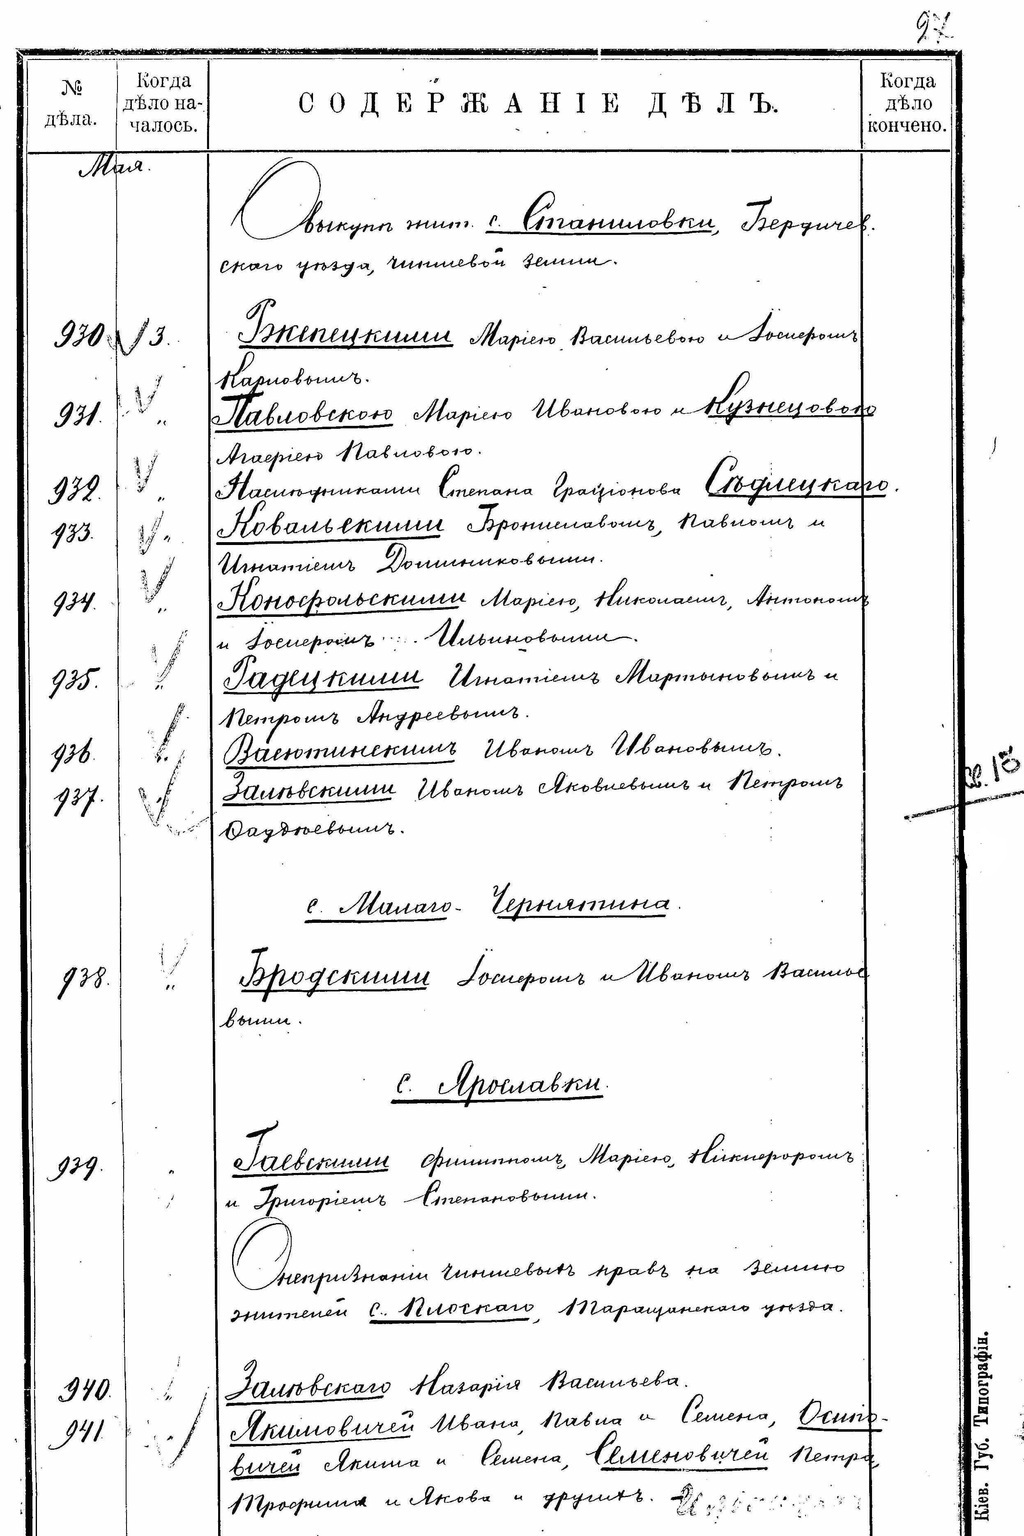 97
№ дѣла.
Когда дѣло началось.
СОДЕРЖАНІЕ ДѢЛЪ.
Когда дѣло кончено.
Мая.
О выкупѣ жит. с. Станиловки, Бердичев.
скаго уѣзда, чиншевой земли.
930 3. Ржепецкими Маріею Васильевою и Іосифомъ
Карловымъ.
931. " Павловскою Маріею Ивановою и Кузнецовою
Павловою.
932. " Наслѣдниками Степана Сѣдлецкаго.
933. " Ковальскими Брониславомъ, Павломъ и
Игнатіемъ Доминиковыми.
934. " Конофольскими Маріею, Николаемъ, Антономъ
и Іосифомъ Ильиновыми.
935. " Радецкими Игнатіемъ Мартыновымъ и
Петромъ Андреевымъ.
936. " Васютинскимъ Иваномъ Ивановымъ.
937. " Залѣвскими Иваномъ Яковлевымъ и Петромъ
Фаддѣевымъ.
Св. 15
с. Малаго-Чернятина.
938. " Бродскими Іосифомъ и Иваномъ Василье
выми.
с. Ярославки.
939. " Гаевскими Филиппомъ, Маріею, Никифоромъ
и Григоріемъ Степановыми.
О непризнаніи чиншевыхъ правъ на землю
жителей с. Плоскаго, Таращанскаго уѣзда.
940. " Залѣвскаго Назарія Васильева.
941. " Якимовичей Ивана, Павла и Семена, Осипо-
вичей Якима и Семена, Семеновичей Петра,
Трофима и Якова и другихъ.
Кіев. Губ. Типографін.